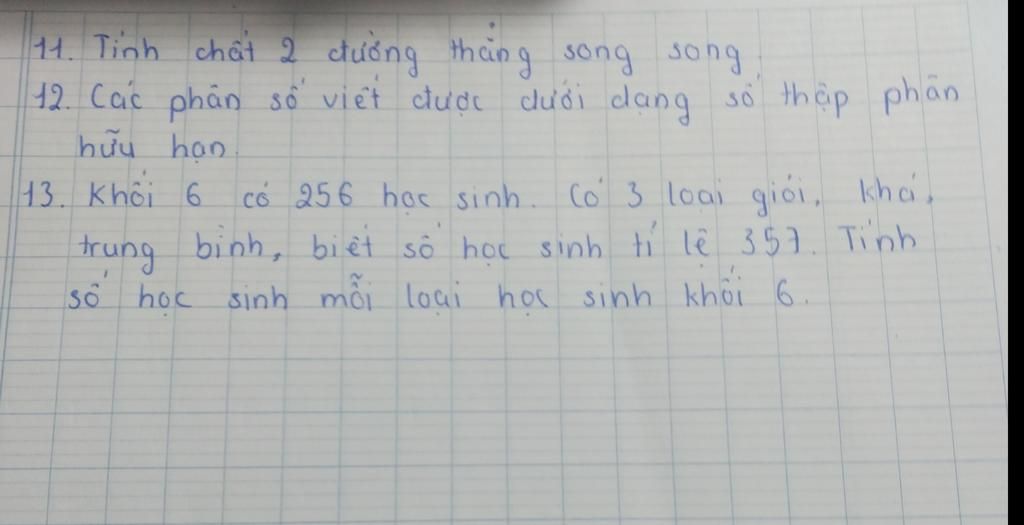 11. Tính chất 2 đường thẳng song song.
12. Các phân số viết được dưới dạng số thập phân
hữu hạn.
13. Khối 6 có 256 học sinh. Có 3 loại giỏi, khá,
trung bình, biết số học sinh tỉ lệ 357. Tính
số học sinh mỗi loại học sinh khối 6.